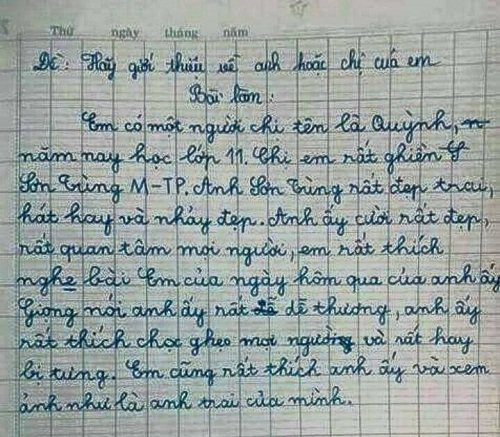 Thứ ngày tháng năm
Đề: Hãy giới thiệu về anh hoặc chị của em
Bài làm:
Em có một người chi tên là Quỳnh,
năm nay học lớp 11. Chi em rất ghiền
Sơn Tùng M-TP. Anh Sơn Tùng rất đẹp trai,
hát hay và nhảy đẹp. Anh ấy cười rất đẹp,
rất quan tâm mọi người, em rất thích
nghe bài Em của ngày hôm qua của anh ấy
Giọng nói anh ấy rất dễ thương, anh ấy
rất thích chọc ghẹo mọi người và rất hay
bị tưng. Em cũng rất thích anh ấy và xem
ảnh như là anh trai của mình.